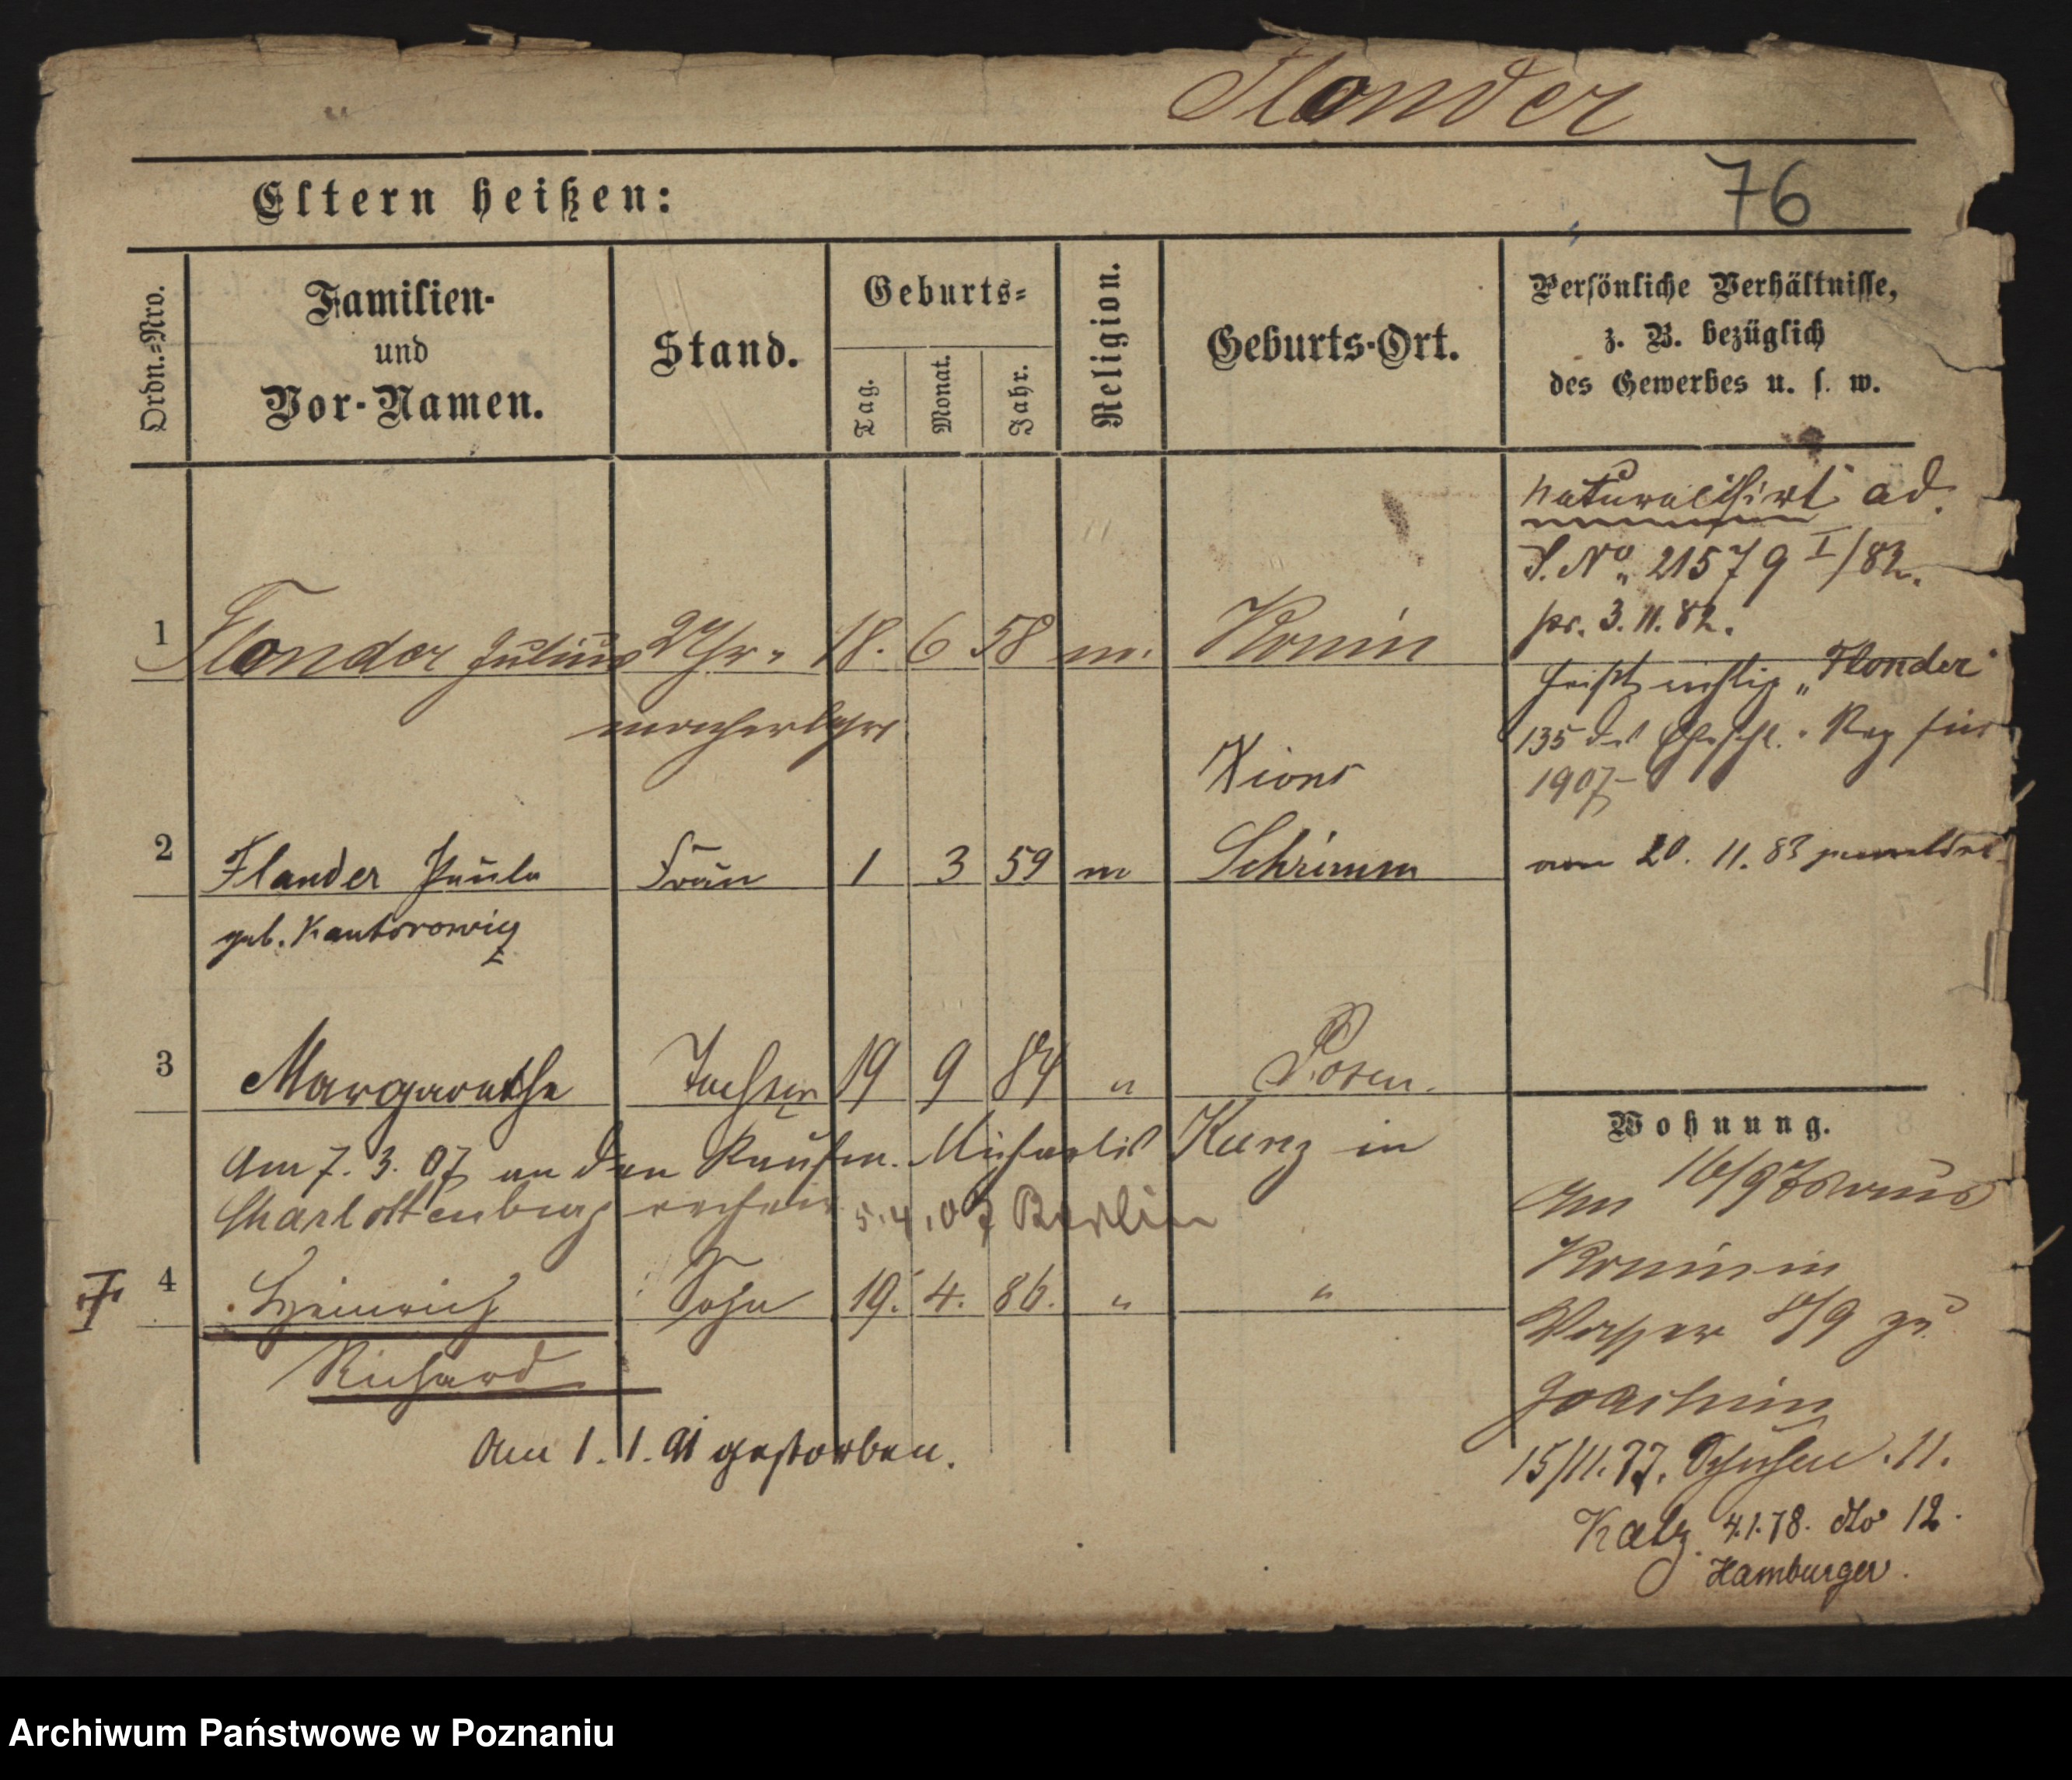 Flonder
76
Eltern heißen:
Ordn.=Nro.
Familien-
und
Vor-Namen.
Stand.
Geburts=
Tag.
Monat.
Jahr.
Religion.
Geburts-Ort.
Persönliche Verhältnisse,
z. B. bezüglich
des Gewerbes u. s. w.
naturalisirt ad.
S. No. 21579 I/82.
pr. 3.11.82.
1 Flonder Julius 18. 6 58 m. Konin
heißt richtig „Flonder"
135 des Eheschl. Reg für
1907
Xions
2 Flander Paula Frau 1 3 59 m Schrimm
20. 11. 83
geb. Kantorowicz
3 Margarethe Tochter 19 9 84 " Posen.
Am 7. 3. 07 an den Kaufm. Michaelis Kunz in
Charlottenburg 5.4.07 Berlin
4 Heinrich Sohn 19. 4. 86. " "
Richard
Am 1. 1. 91 gestorben.
Wohnung.
Am 16/9 aus
Konin in
8/9 zu
Joachim
15/11.77. 11.
Katz. 4.1.78. dto 12.
Hamburger.
Archiwum Państwowe w Poznaniu